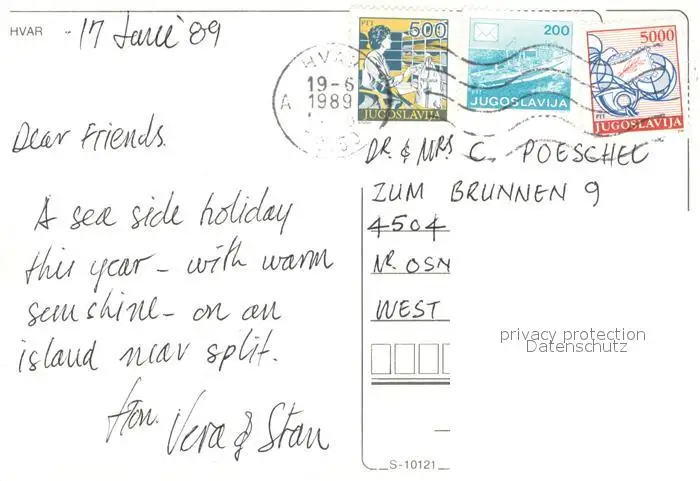 HVAR
17 June '89
500
200
5000
PTT
JUGOSLAVIJA
JUGOSLAVIJA
PTT
JUGOSLAVIJA
HVAR
19-6
1989
A
Dear Friends.
A sea side holiday
this year - with warm
sunshine - on an
island near split.
from.
Vera & Stan
DR. & MRS C. POESCHEL
ZUM BRUNNEN 9
4504
NR. OSN
WEST
privacy protection
Datenschutz
S-10121